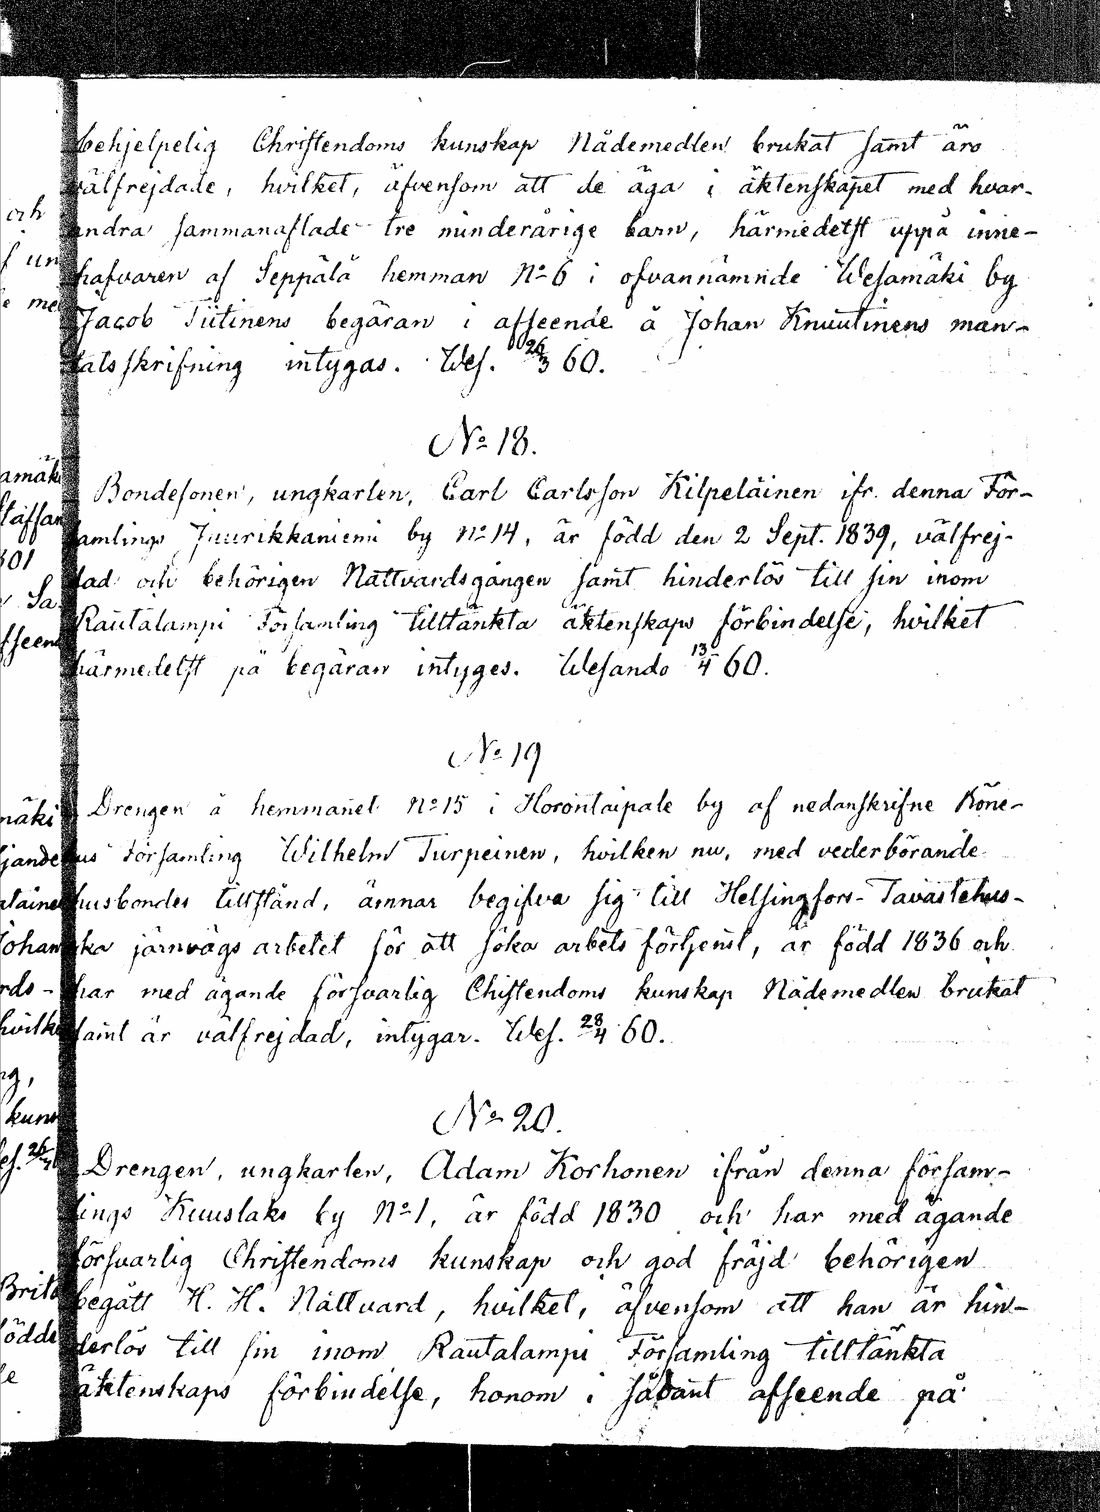 behjelpelig Christendoms kunskap Nådemedlen brukat samt äro
välfrejdade, hvilket, äfvensom att de äga i äktenskapet med hvar-
andra sammanaflade tre minderårige barn, härmedelst uppå inne-
hafvaren af Seppälä hemman No 6 i ofvannämnde Wesamäki by
Jacob Tiitinens begäran i afseende å Johan Knuutinens man-
talsskrifning intygas. Wes. 26/3 60.
No 18.
Bondesonen, ungkarlen, Carl Carlsson Kilpeläinen ifr. denna För-
samlings Juurikkaniemi by No 14, är född den 2 Sept. 1839, välfrej-
dad och behörigen Nattvardsgången samt hinderlös till sin inom
Rautalampi Församling tilltänkta äktenskaps förbindelse, hvilket
härmedelst på begäran intyges. Wesando 13/4 60.
No 19
Drengen å hemmanet No 15 i Horontaipale by af nedanskrifne Köne-
us Församling Wilhelm Turpeinen, hvilken nu, med vederbörande
husbondes tillstånd, ämnar begifva sig till Helsingfors-Tavastehus-
ska järnvägs arbetet för att söka arbets förtjenst, är född 1836 och
har med ägande försvarlig Chistendoms kunskap Nådemedlen brukat
samt är välfrejdad, intygar. Wes. 28/4 60.
No 20.
Drengen, ungkarlen, Adam Korhonen ifrån denna försam-
lings Kuuslaks by No 1, är född 1830 och har med ägande
försvarlig Christendoms kunskap och god fräjd behörigen
begått H. H. Nattvard, hvilket, äfvensom att han är hin-
derlös till sin inom Rautalampi Församling tilltänkta
äktenskaps förbindelse, honom i sådant afseende på